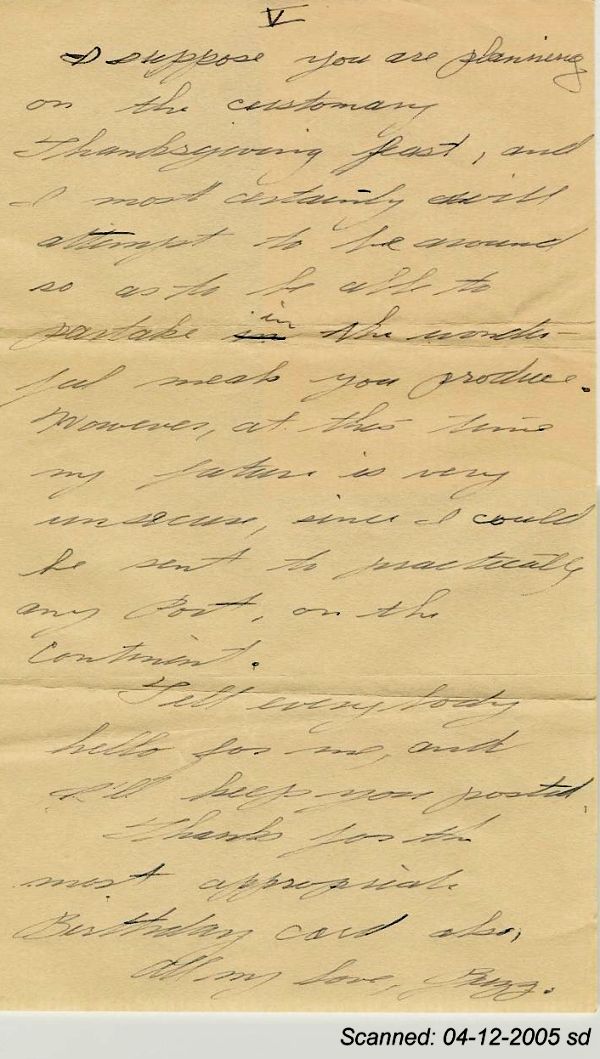 V
I suppose you are planning
on the customary
Thanksgiving feast, and
I most certainly will
attempt to be around
so as to be able to
partake in the wonder-
ful meals you produce.
However, at this time
my future is very
unsecure, since I could
be sent to practically
any Post, on the
Continent.
Tell everybody
hello for me, and
I'll keep you posted.
Thanks for the
most appropriate
Birthday card also,
All my love,
Scanned: 04-12-2005 sd